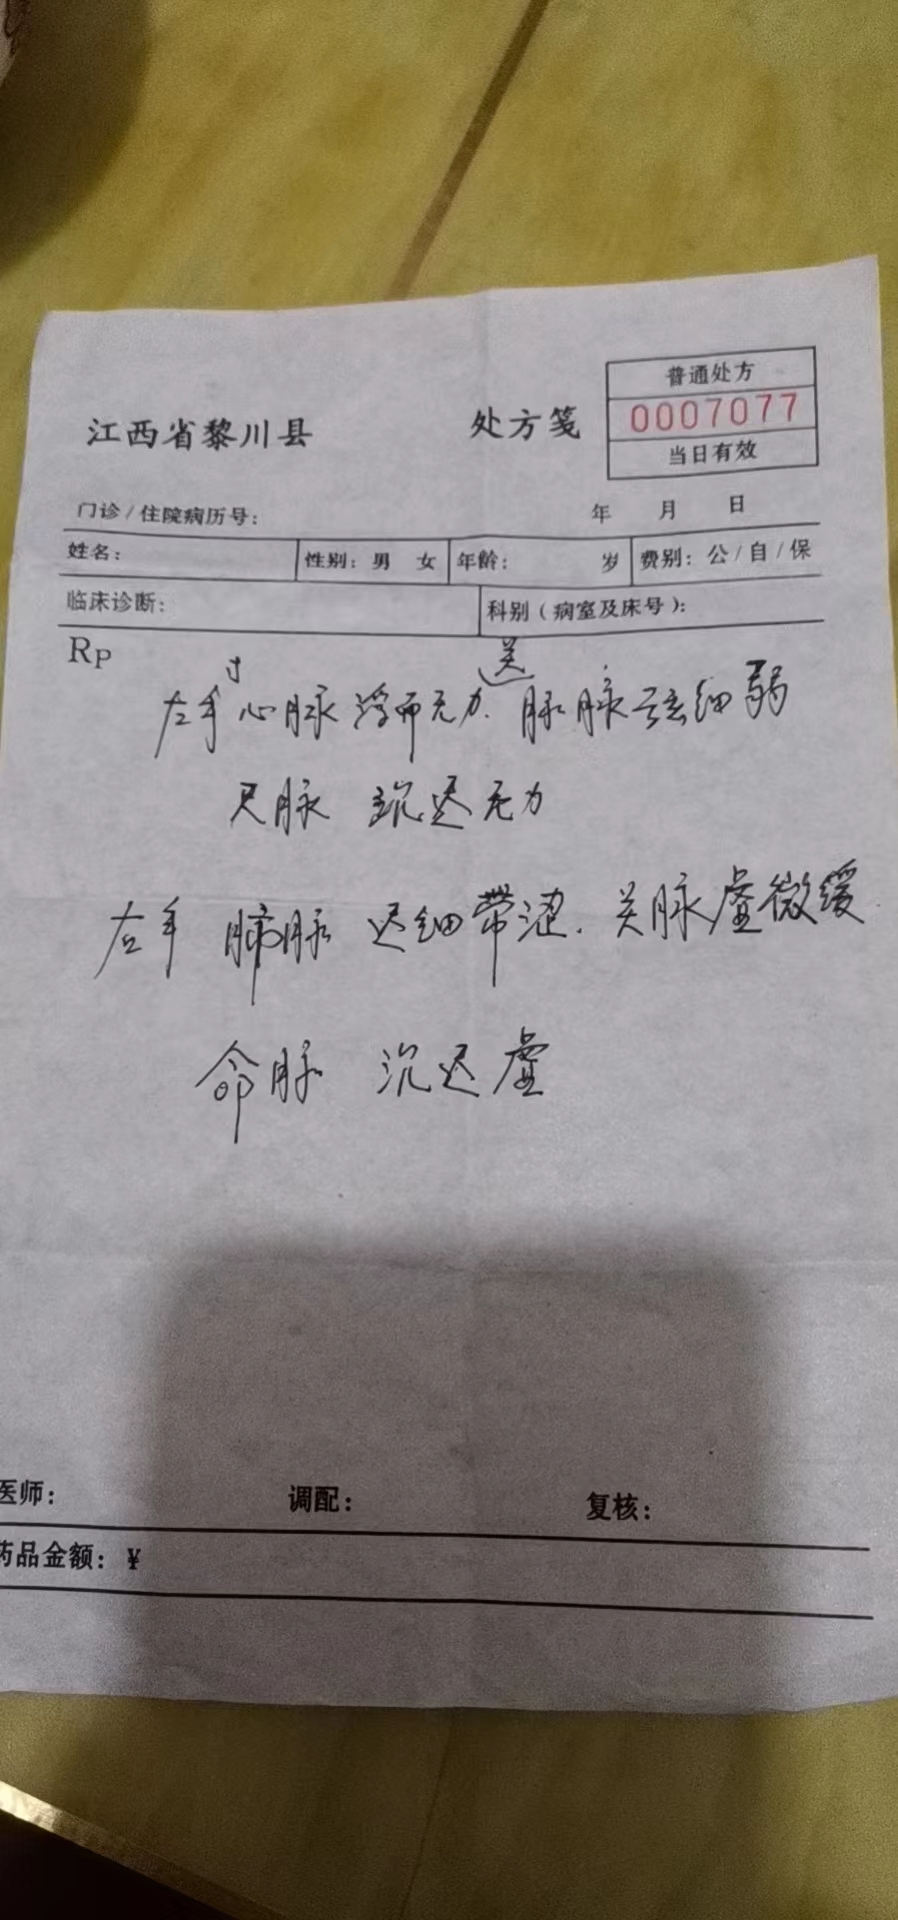 普通处方
江西省黎川县 处方笺 0007077
当日有效
门诊/住院病历号： 年 月 日
姓名： 性别：男 女 年龄： 岁 费别：公/自/保
临床诊断： 科别（病室及床号）：
Rp
寸 关
左手心脉浮而无力. 脉脉弦细弱
尺脉 沉迟无力
右手 肺脉 迟细带涩. 关脉虚微缓
命脉 沉迟虚
医师： 调配： 复核：
药品金额：¥